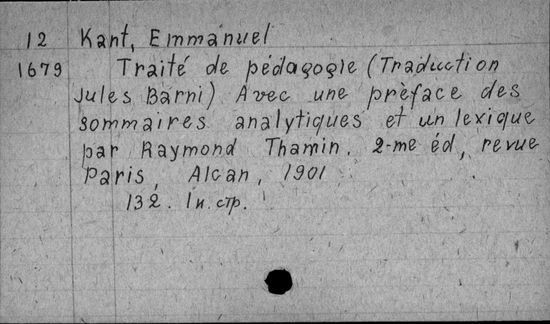 12 Kant, Emmanuel
1679 Traité de pédagogie (Traduction
Jules Barni) Avec une prèface des
sommaires analytiques et un lexique
par Raymond Thamin. 2-me éd, revue
Paris, Alcan, 1901
132. In. стр.